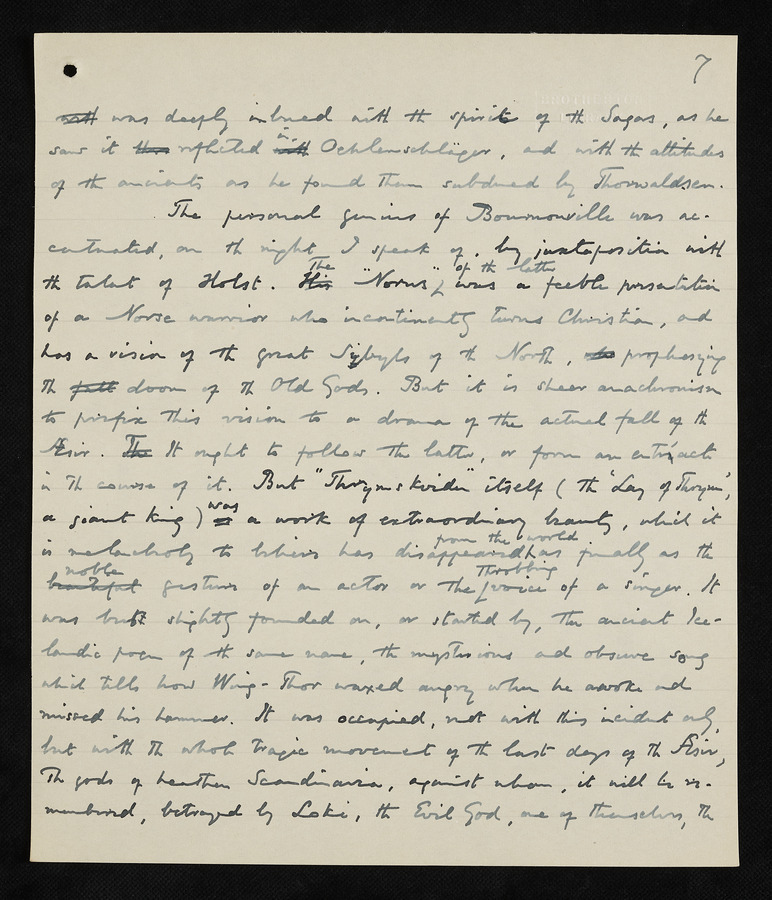 7
with was deeply imbued with the spirit of the Sagas, as he
saw it thus reflected with in Oehlenschläger, and with the attitudes
of the ancients as he found them subdued by Thorwaldsen.
The personal genius of Bournonville was ac-
centuated, on the night I speak of, by juxtaposition with
the talent of Holst. His The "Norns" of the latter was a feeble presentation
of a Norse warrior who incontinently turns Christian, and
has a vision of the great Sybyls of the North, prophesying
the fall doom of the Old Gods. But it is sheer anachronism
to prefix this vision to a drama of the actual fall of the
Æsir. The It ought to follow the latter, or form an entr'acte
in the course of it. But "Thrymskviden" itself (the 'Lay of Thrym',
a giant king) is was a work of extraordinary beauty, which it
is melancholy to believe has disappeared from the world as finally as the
beautiful noble gesture of an actor or the throbbing voice of a singer. It
was but slightly founded on, or started by, the ancient Ice-
landic poem of the same name, the mysterious and obscure song
which tells how Wing-Thor waxed angry when he awoke and
missed his hammer. It was occupied, not with this incident only,
but with the whole tragic movement of the last days of the Æsir,
the gods of heathen Scandinavia, against whom, it will be re-
membered, betrayed by Loki, the Evil God, one of themselves, the